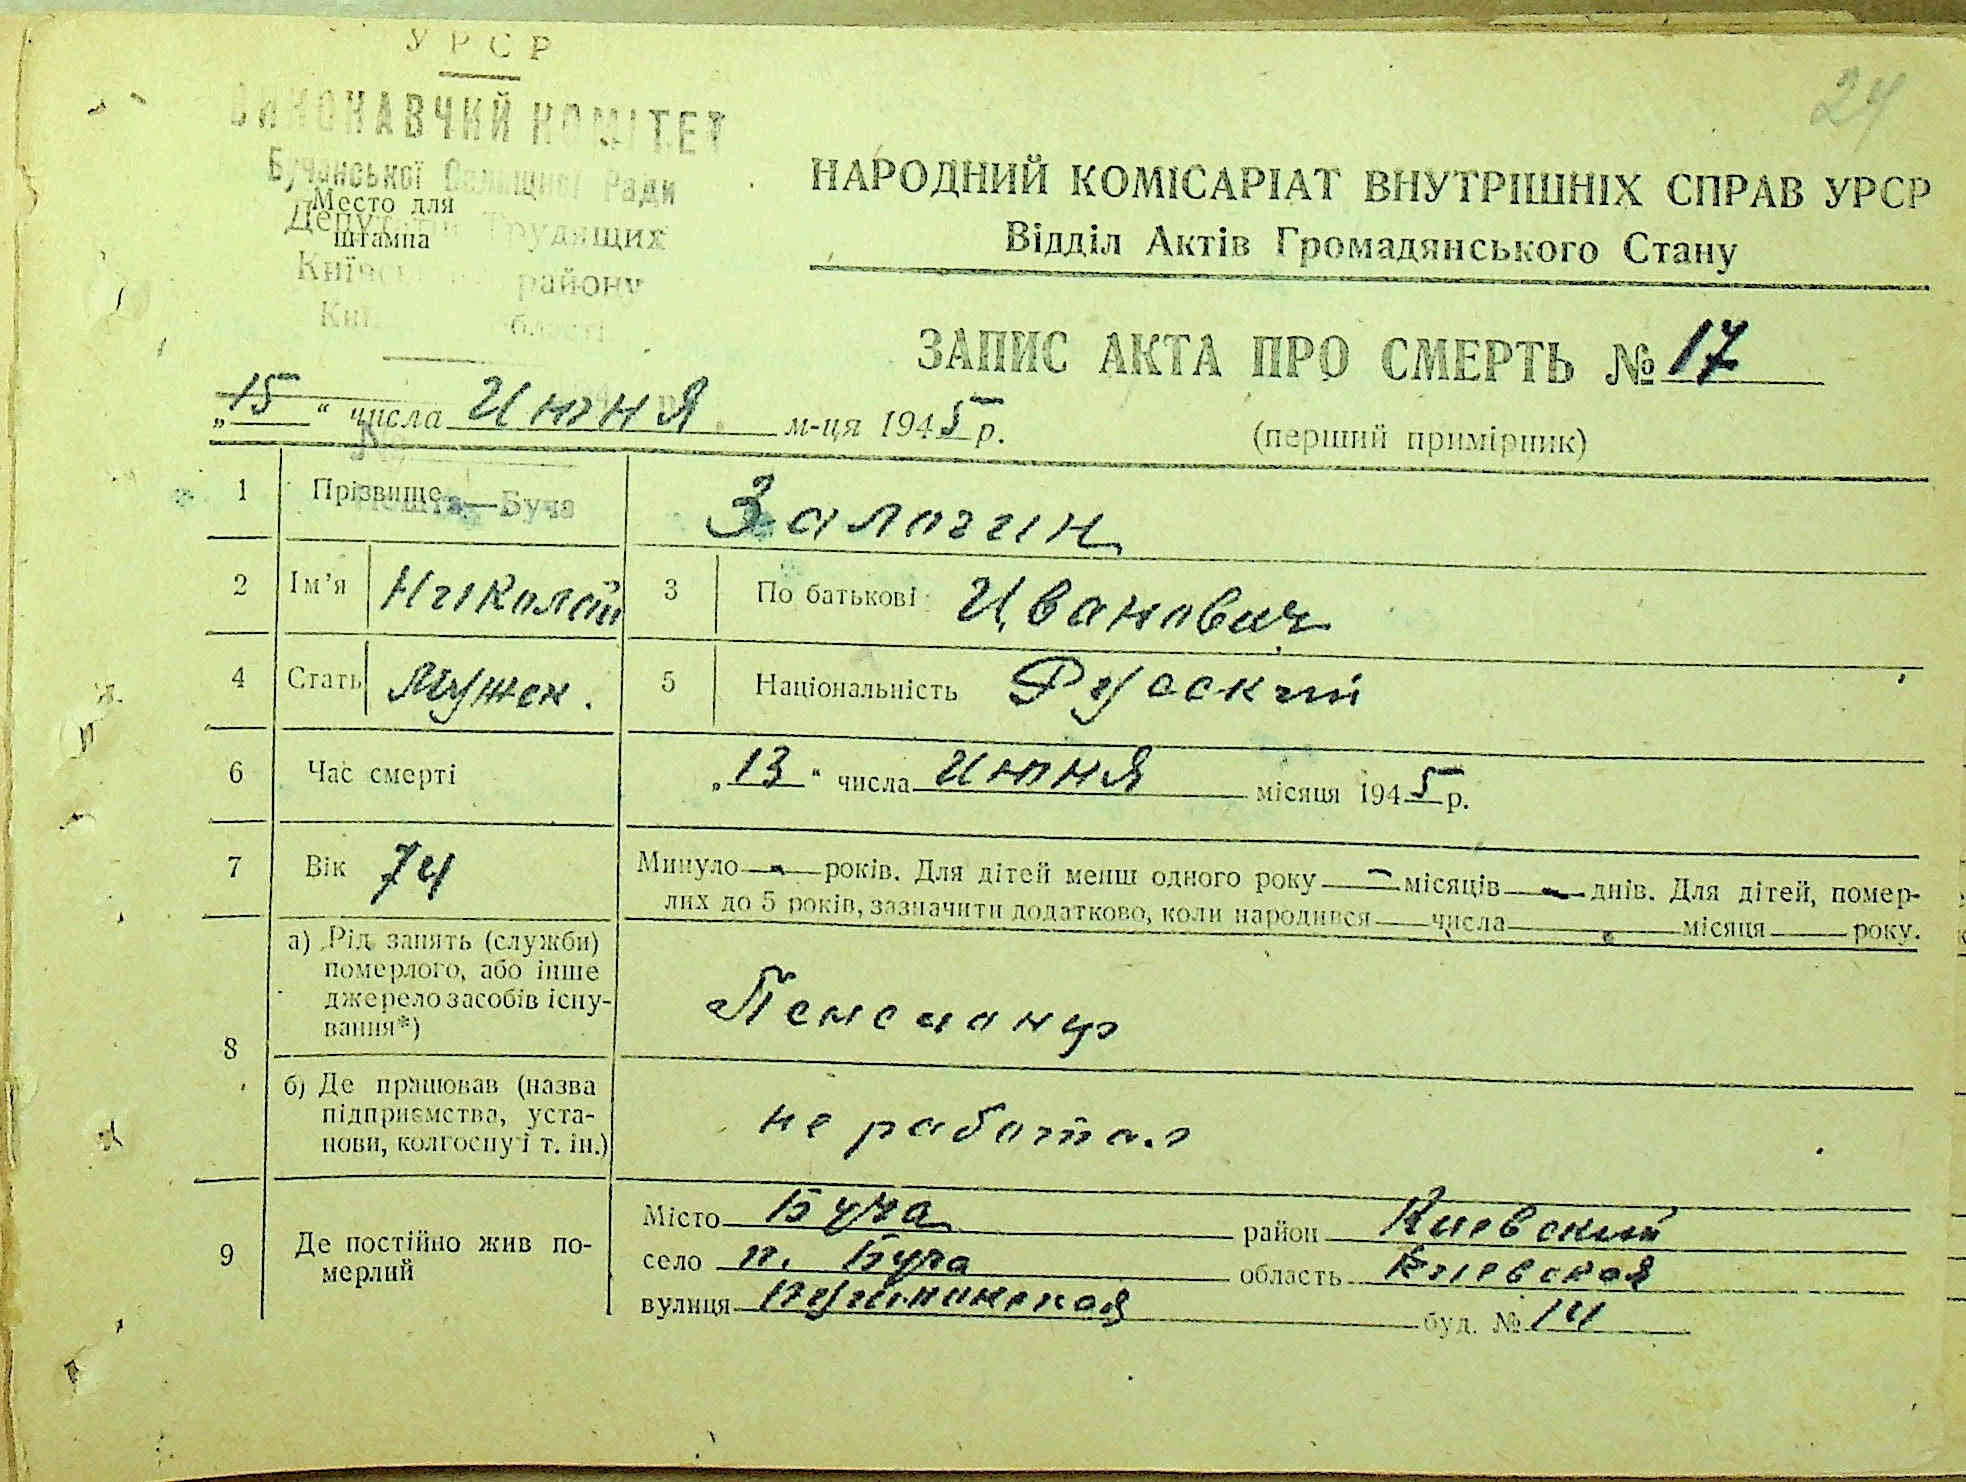 24
УРСР
ВИКОНАВЧИЙ КОМІТЕТ
Бучанської Селищної Ради
Место для
штампа
Трудящих
району
НАРОДНИЙ КОМІСАРІАТ ВНУТРІШНІХ СПРАВ УРСР
Відділ Актів Громадянського Стану
ЗАПИС АКТА ПРО СМЕРТЬ № 17
„15“ числа Июня м-ця 1945 р.
(перший примірник)
1 Прізвище Залогин
Пошта—Буча
2 Ім’я Николай 3 По батькові Иванович
4 Стать Мужск. 5 Національність Русский
6 Час смерті „13“ числа Июня місяця 1945 р.
7 Вік 74 Минуло — років. Для дітей менш одного року — місяців — днів. Для дітей, помер-
лих до 5 років, зазначити додатково, коли народився — числа — місяця — року.
8 а) Рід занять (служби)
померлого, або інше
джерело засобів існу-
вання*)
Пенсионер
б) Де працював (назва
підприємства, уста-
нови, колгоспу і т. ін.)
не работал
9 Де постійно жив по-
мерлий
Місто Буча район Киевский
село п. Буча область Киевская
вулиця буд. № 14